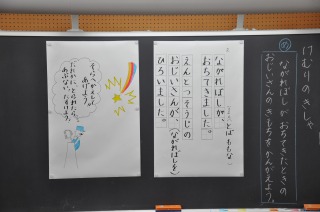 けむりのきしゃ
め
ながれぼしが おちてきたときの
おじいさんの きもちをかんがえよう。
ながれぼしが、
おちてきました。
えんとつそうじの
おじいさんが、(ながれぼしを)
ひろいました。
そらへかえして
あげよう。